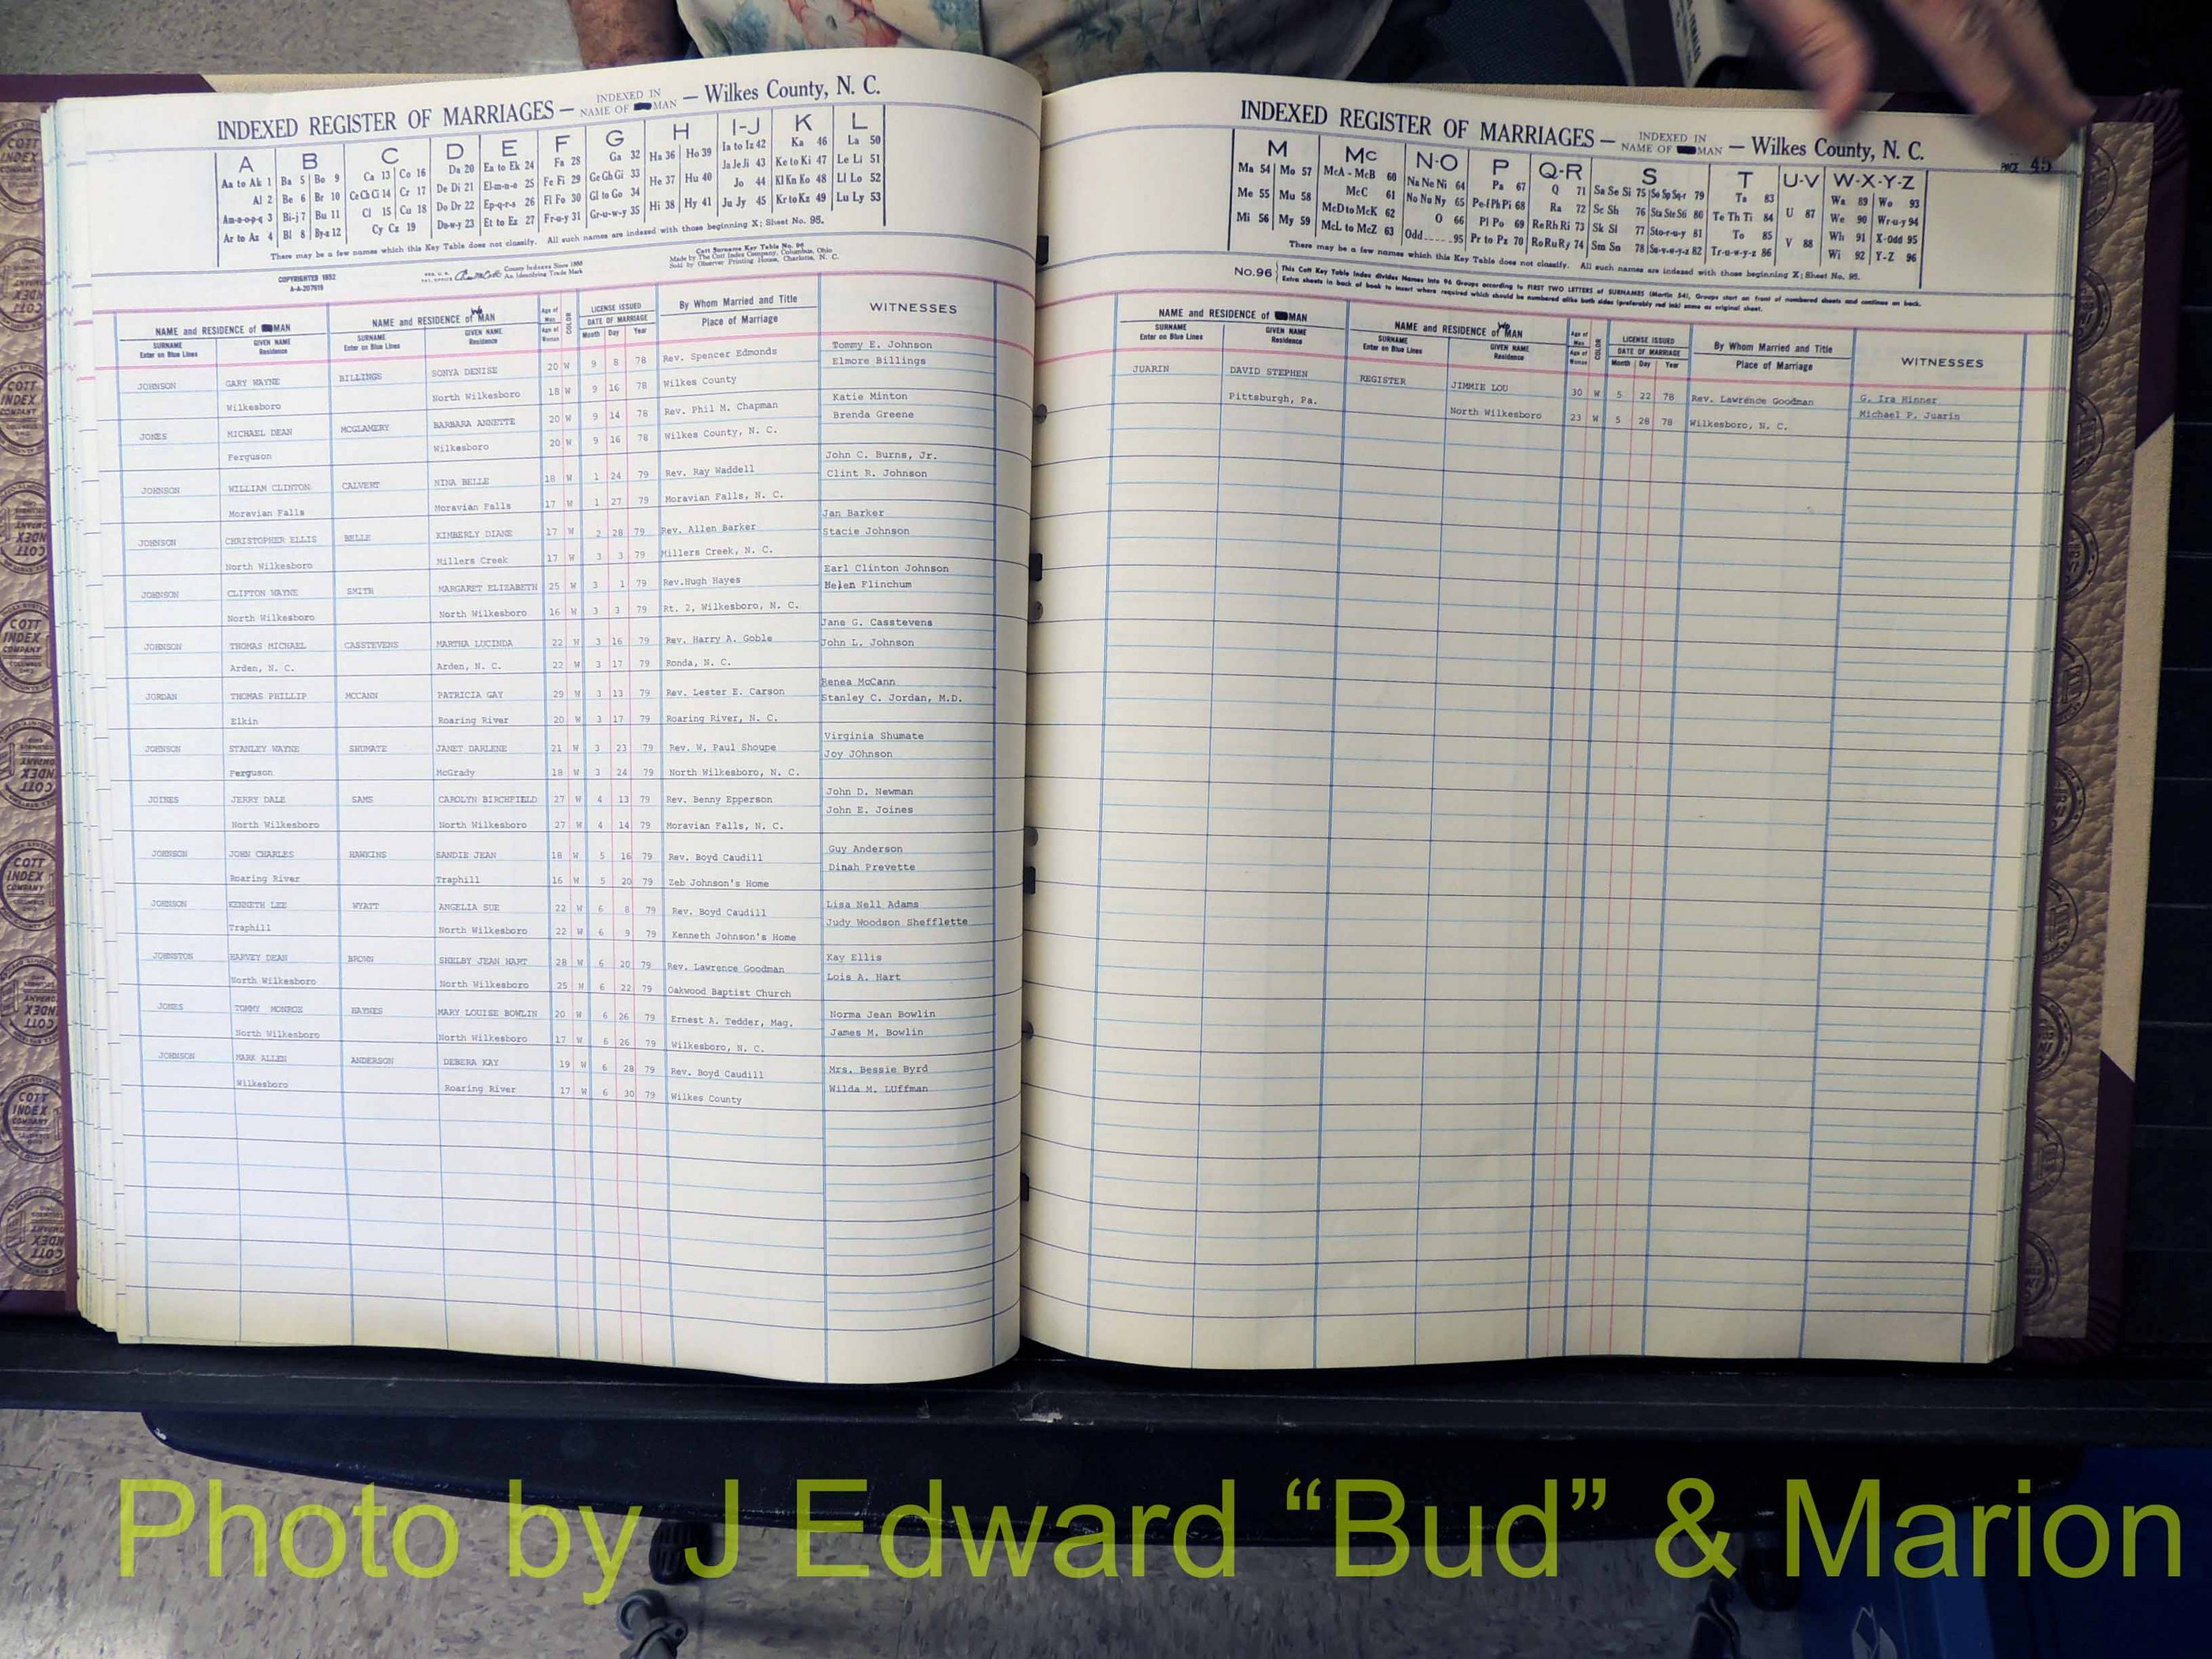 INDEXED REGISTER OF MARRIAGES — INDEXED IN NAME OF MAN — Wilkes County, N. C.
A B C D E F G H I-J K L
Aa to Ak 1 Ba 5 Bo 9 Ca 13 Co 16 Da 20 Ea to Ek 24 Fa 28 Ga 32 Ha 36 Ho 39 Ia to Iz 42 Ka 46 La 50
Al 2 Be 6 Br 10 Ce Ch Ci 14 Cr 17 De Di 21 El-m-n-o 25 Fe Fi 29 Ge Gh Gi 33 He 37 Hu 40 Ja Je Ji 43 Ke to Ki 47 Le Li 51
Am-n-o-p-q 3 Bi-j 7 Bu 11 Cl 15 Cu 18 Do Dr 22 Ep-q-r-s 26 Fl Fo 30 Gl to Go 34 Hi 38 Hy 41 Jo 44 Kl Kn Ko 48 Ll Lo 52
Ar to Az 4 Bl 8 By-z 12 Cy Cz 19 Du-w-y 23 Et to Ez 27 Fr-u-y 31 Gr-u-w-y 35 Ju Jy 45 Kr to Kz 49 Lu Ly 53
There may be a few names which this Key Table does not classify. All such names are indexed with those beginning X; Sheet No. 95.
COPYRIGHTED 1852
A-A-207619
County Indexes Since 1888
An Identifying Trade Mark
Cott Surname Key Table No. 96
Made by The Cott Index Company, Columbus, Ohio
Sold by Observer Printing House, Charlotte, N. C.
NAME and RESIDENCE of MAN NAME and RESIDENCE of WoMAN Age of Man COLOR LICENSE ISSUED By Whom Married and Title WITNESSES
SURNAME GIVEN NAME SURNAME GIVEN NAME Age of Woman DATE OF MARRIAGE Place of Marriage
Enter on Blue Lines Residence Enter on Blue Lines Residence Month Day Year
Tommy E. Johnson
JOHNSON GARY WAYNE BILLINGS SONYA DENISE 20 W 9 8 78 Rev. Spencer Edmonds Elmore Billings
Wilkesboro North Wilkesboro 18 W 9 16 78 Wilkes County
Katie Minton
JONES MICHAEL DEAN MCGLAMERY BARBARA ANNETTE 20 W 9 14 78 Rev. Phil M. Chapman Brenda Greene
Ferguson Wilkesboro 20 W 9 16 78 Wilkes County, N. C.
John C. Burns, Jr.
JOHNSON WILLIAM CLINTON CALVERT NINA BELLE 18 W 1 24 79 Rev. Ray Waddell Clint R. Johnson
Moravian Falls Moravian Falls 17 W 1 27 79 Moravian Falls, N. C.
Jan Barker
JOHNSON CHRISTOPHER ELLIS BELLE KIMBERLY DIANE 17 W 2 28 79 Rev. Allen Barker Stacie Johnson
North Wilkesboro Millers Creek 17 W 3 3 79 Millers Creek, N. C.
Earl Clinton Johnson
JOHNSON CLIFTON WAYNE SMITH MARGARET ELIZABETH 25 W 3 1 79 Rev.Hugh Hayes Helen Flinchum
North Wilkesboro North Wilkesboro 16 W 3 3 79 Rt. 2, Wilkesboro, N. C.
Jane G. Casstevens
JOHNSON THOMAS MICHAEL CASSTEVENS MARTHA LUCINDA 22 W 3 16 79 Rev. Harry A. Goble John L. Johnson
Arden, N. C. Arden, N. C. 22 W 3 17 79 Ronda, N. C.
Renea McCann
JORDAN THOMAS PHILLIP MCCANN PATRICIA GAY 29 W 3 13 79 Rev. Lester E. Carson Stanley C. Jordan, M.D.
Elkin Roaring River 20 W 3 17 79 Roaring River, N. C.
Virginia Shumate
JOHNSON STANLEY WAYNE SHUMATE JANET DARLENE 21 W 3 23 79 Rev. W. Paul Shoupe Joy JOhnson
Ferguson McGrady 18 W 3 24 79 North Wilkesboro, N. C.
John D. Newman
JOINES JERRY DALE SAMS CAROLYN BIRCHFIELD 27 W 4 13 79 Rev. Benny Epperson John E. Joines
North Wilkesboro North Wilkesboro 27 W 4 14 79 Moravian Falls, N. C.
Guy Anderson
JOHNSON JOHN CHARLES HAWKINS SANDIE JEAN 18 W 5 16 79 Rev. Boyd Caudill Dinah Prevette
Roaring River Traphill 16 W 5 20 79 Zeb Johnson's Home
Lisa Nell Adams
JOHNSON KENNETH LEE WYATT ANGELIA SUE 22 W 6 8 79 Rev. Boyd Caudill Judy Woodson Shefflette
Traphill North Wilkesboro 22 W 6 9 79 Kenneth Johnson's Home
Kay Ellis
JOHNSTON HARVEY DEAN BROWN SHELBY JEAN HART 28 W 6 20 79 Rev. Lawrence Goodman Lois A. Hart
North Wilkesboro North Wilkesboro 25 W 6 22 79 Oakwood Baptist Church
JONES TOMMY MONROE HAYNES MARY LOUISE BOWLIN 20 W 6 26 79 Ernest A. Tedder, Mag. Norma Jean Bowlin
North Wilkesboro North Wilkesboro 17 W 6 26 79 Wilkesboro, N. C. James M. Bowlin
JOHNSON MARK ALLEN ANDERSON DEBERA KAY 19 W 6 28 79 Rev. Boyd Caudill Mrs. Bessie Byrd
Wilkesboro Roaring River 17 W 6 30 79 Wilkes County Wilda M. LUffman
INDEXED REGISTER OF MARRIAGES — INDEXED IN NAME OF MAN — Wilkes County, N. C.
PAGE 45
M Mc N-O P Q-R S T U-V W-X-Y-Z
Ma 54 Mo 57 McA - McB 60 Na Ne Ni 64 Pa 67 Q 71 Sa Se Si 75 So Sp Sq-r 79 Ta 83 U 87 Wa 89 Wo 93
Me 55 Mu 58 McC 61 No Nu Ny 65 Pe-f Ph Pi 68 Ra 72 Sc Sh 76 Sta Ste Sti 80 Te Th Ti 84 V 88 We 90 Wr-u-y 94
Mi 56 My 59 McD to McK 62 O 66 Pl Po 69 Re Rh Ri 73 Sk Sl 77 Sto-r-u-y 81 To 85 Wh 91 X-Odd 95
McL to McZ 63 Odd 95 Pr to Pz 70 Ro Ru Ry 74 Sm Sn 78 Su-v-w-y-z 82 Tr-u-w-y-z 86 Wi 92 Y-Z 96
There may be a few names which this Key Table does not classify. All such names are indexed with those beginning X; Sheet No. 95.
No.96 This Cott Key Table Index divides Names into 96 Groups according to FIRST TWO LETTERS of SURNAMES (Martin 54), Groups start on front of numbered sheets and continue on back.
Extra sheets in back of book to insert where required which should be numbered alike both sides (preferably red ink) same as original sheet.
NAME and RESIDENCE of MAN NAME and RESIDENCE of WoMAN Age of Man COLOR LICENSE ISSUED By Whom Married and Title WITNESSES
SURNAME GIVEN NAME SURNAME GIVEN NAME Age of Woman DATE OF MARRIAGE Place of Marriage
Enter on Blue Lines Residence Enter on Blue Lines Residence Month Day Year
JUARIN DAVID STEPHEN REGISTER JIMMIE LOU 30 W 5 22 78 Rev. Lawrence Goodman G. Ira Minner
Pittsburgh, Pa. North Wilkesboro 23 W 5 28 78 Wilkesboro, N. C. Michael P. Juarin
COTT INDEX COMPANY
Photo by J Edward “Bud” & Marion